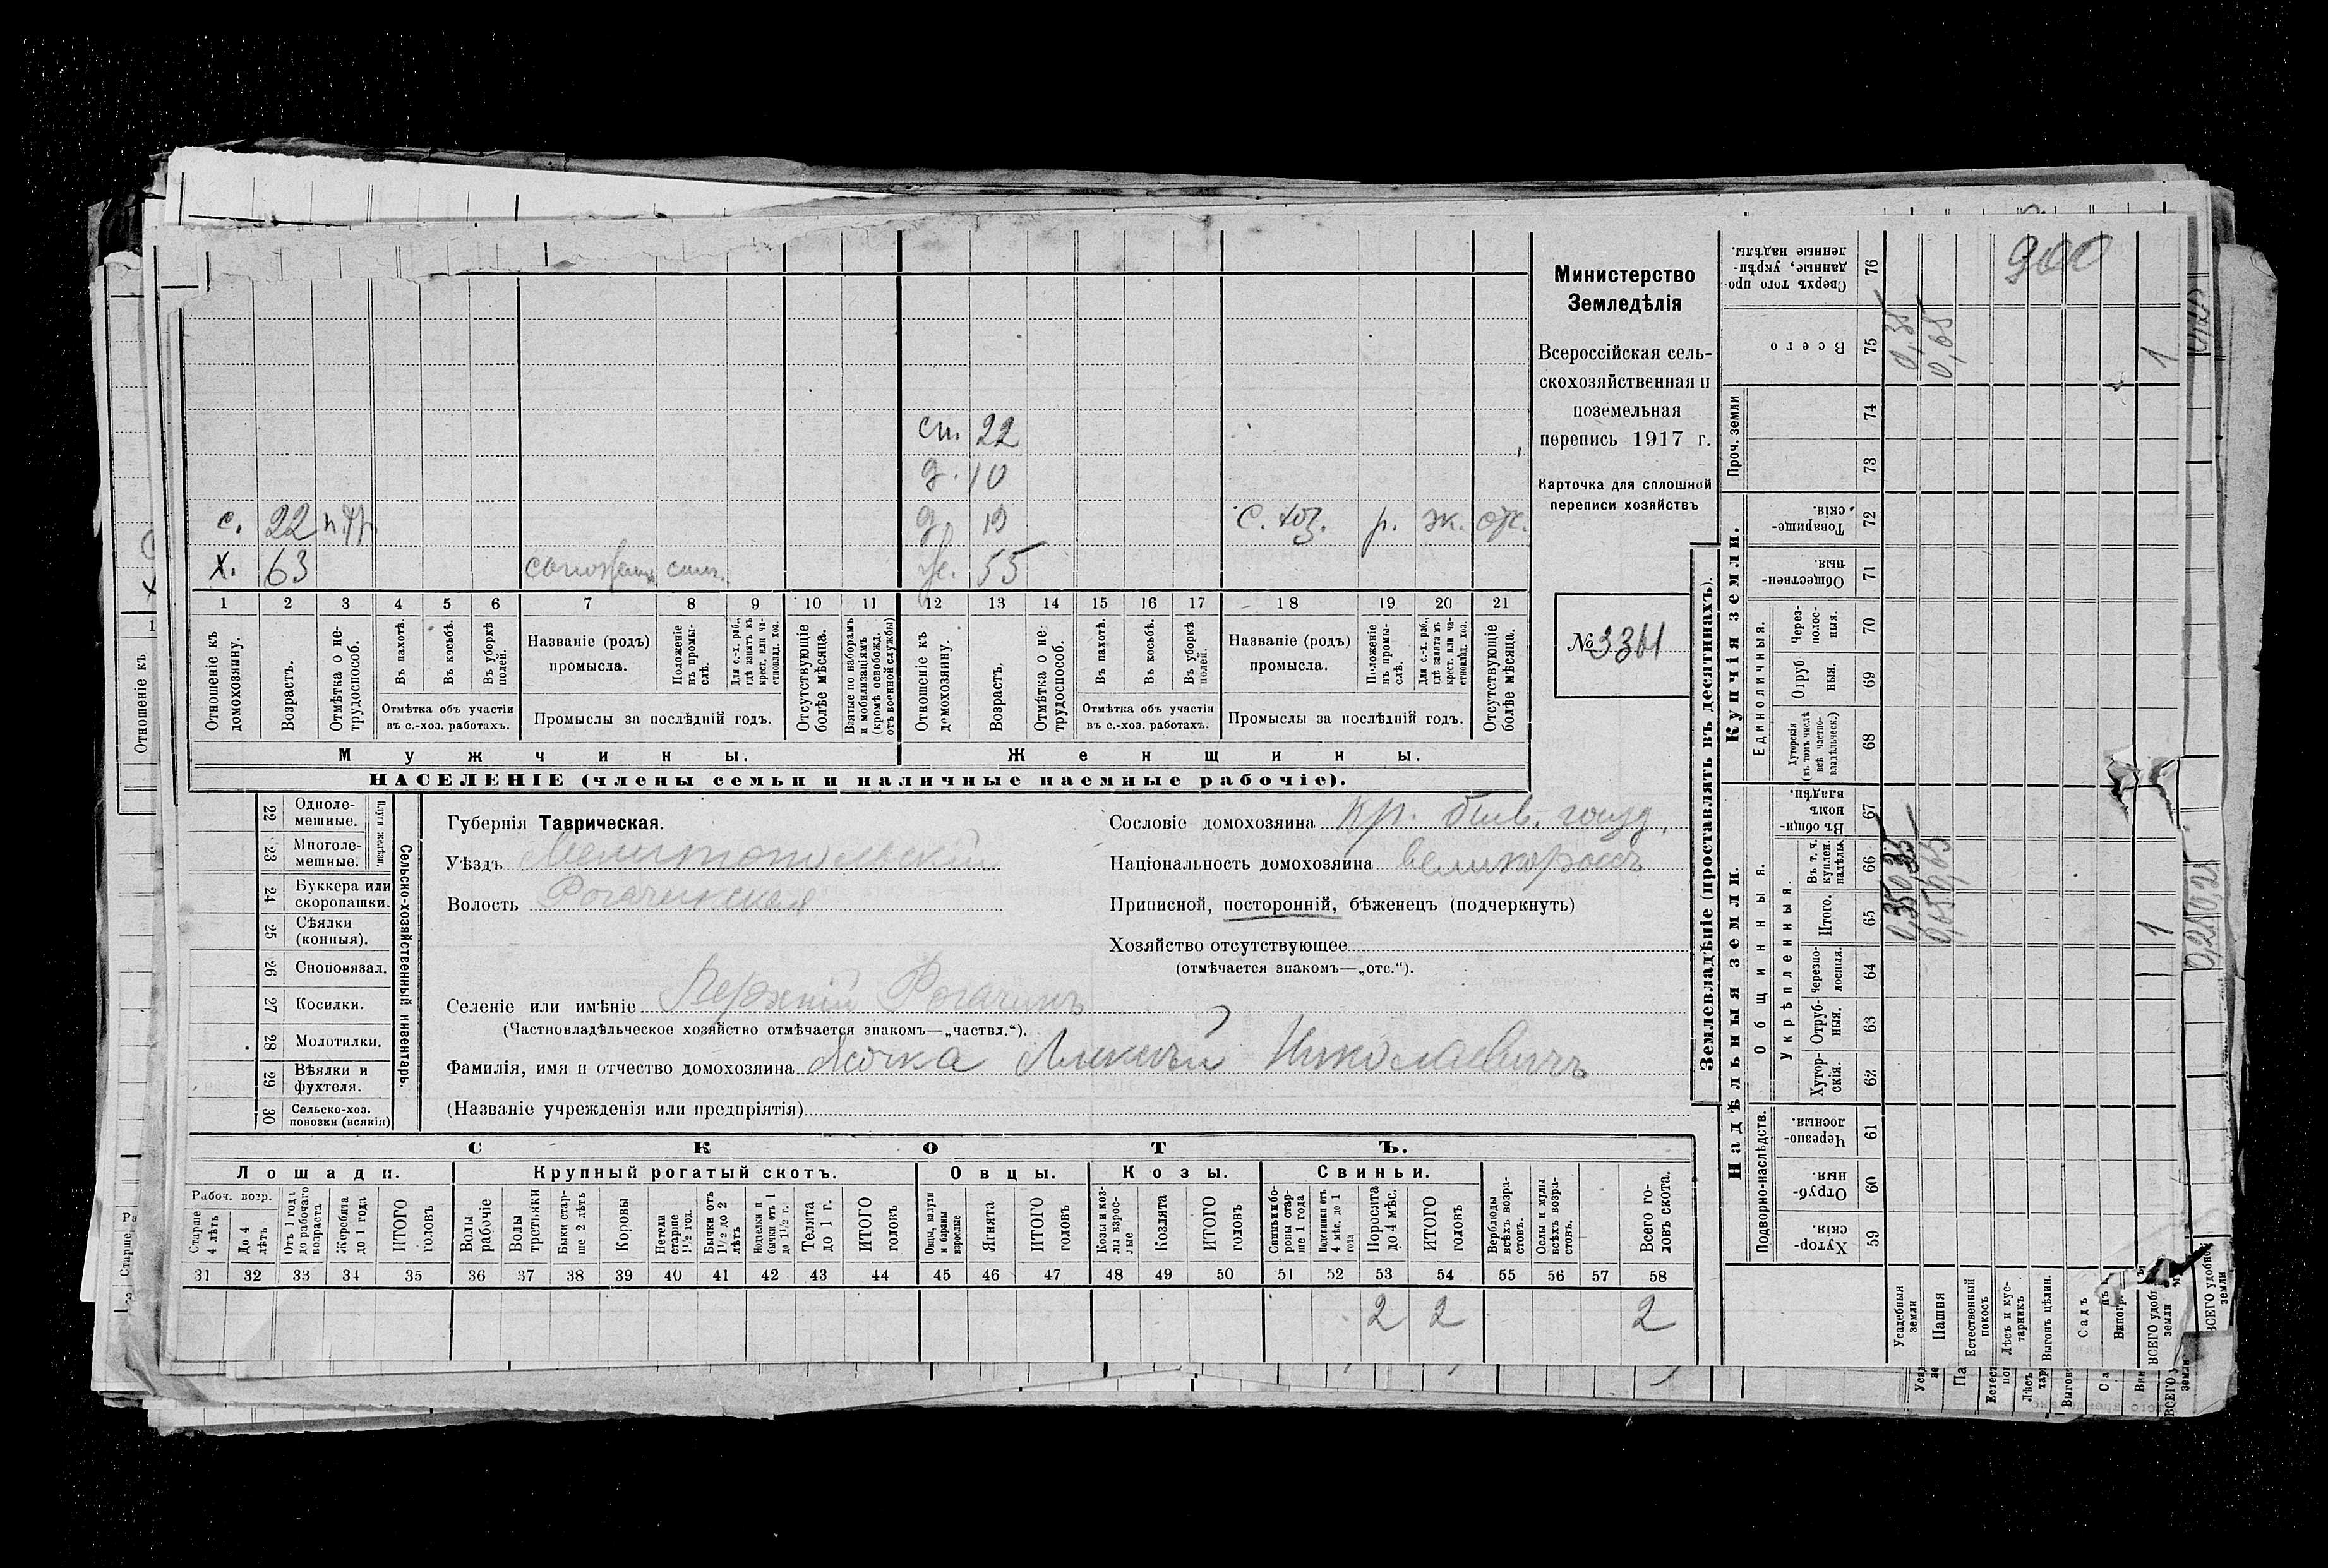 сп. 22
д. 10
с. 22 н тр. д. 19 С. хоз. р. ж. отс.
х. 63 сапожник ж. 55
1 2 3 4 5 6 7 8 9 10 11 12 13 14 15 16 17 18 19 20 21
Отношеніе къ домохозяину.
Возрастъ.
Отмѣтка о не-трудоспособ.
Въ пахотѣ.
Въ косьбѣ.
Въ уборкѣ полей.
Отмѣтка объ участіи
въ с.-хоз. работахъ.
Названіе (родъ)
промысла.
Положеніе въ промы-слѣ.
Для с.-х. раб., гдѣ занятъ въ крест. или ча-стновлад. хоз.
Промыслы за послѣдній годъ.
Отсутствующіе болѣе мѣсяца.
Взятые по наборамъ и мобилизаціямъ (кромѣ освобожд. отъ военной службы)
Отношеніе къ домохозяину.
Возрастъ.
Отмѣтка о не-трудоспособ.
Въ пахотѣ.
Въ косьбѣ.
Въ уборкѣ полей.
Отмѣтка объ участіи
въ с.-хоз. работахъ.
Названіе (родъ)
промысла.
Положеніе въ промы-слѣ.
Для с.-х. раб., гдѣ занятъ въ крест. или ча-стновлад. хоз.
Промыслы за послѣдній годъ.
Отсутствующіе болѣе мѣсяца.
Мужчины. Женщины.
НАСЕЛЕНІЕ (члены семьи и наличные наемные рабочіе).
Министерство
Земледѣлія
Всероссійская сель-
скохозяйственная и
поземельная
перепись 1917 г.
Карточка для сплошной
переписи хозяйствъ
№ 3361
22 Одноле-мешные.
23 Многоле-мешные.
Плуги желѣзн.
24 Буккера или скоропашки.
25 Сѣялки (конныя).
26 Сноповязал.
27 Косилки.
28 Молотилки.
29 Вѣялки и фухтеля.
30 Сельско-хоз. повозки (всякія)
Сельско-хозяйственный инвентарь.
Губернія Таврическая.
Уѣздъ Мелитопольскій
Волость Рогачикская
Сословіе домохозяина Кр. быв. госуд.
Національность домохозяина великороссъ
Приписной, посторонній, бѣженецъ (подчеркнуть)
Хозяйство отсутствующее
(отмѣчается знакомъ—„отс.“).
Селеніе или имѣніе Верхній Рогачикъ
(Частновладѣльческое хозяйство отмѣчается знакомъ—„частвл.“).
Фамилія, имя и отчество домохозяина Николаевичъ
(Названіе учрежденія или предпріятія)
СКОТЪ.
Лошади. Крупный рогатый скотъ. Овцы. Козы. Свиньи.
Рабоч. возр.
Старше 4 лѣтъ
До 4 лѣтъ
Отъ 1 года до рабочаго возраста
Жеребята до 1 года
ИТОГО головъ
Волы рабочіе
Волы третьяки
Быки стар-ше 2 лѣтъ
Коровы
Нетели старше 1½ год.
Бычки отъ 1½ до 2 лѣтъ
бычки отъ 1 до 1½ г.
Телята до 1 г.
ИТОГО головъ
Овцы, валухи и бараны взрослые
Ягнята
ИТОГО головъ
Козы и коз-лы взрос-лые
Козлята
ИТОГО головъ
Свиньи и бо-ровы стар-ше 1 года
Подсвинки отъ 4 мѣс. до 1 года
Поросята до 4 мѣс.
ИТОГО головъ
Верблюды всѣхъ возра-стовъ.
Ослы и мулы всѣхъ возра-стовъ.
Всего го-ловъ скота.
31 32 33 34 35 36 37 38 39 40 41 42 43 44 45 46 47 48 49 50 51 52 53 54 55 56 57 58
2 2 2
Землевладѣніе (проставлять въ десятинахъ).
Надѣльныя земли. Купчія земли.
Проч. земли
Подворно-наслѣдств.
Общинныя.
Укрѣпленныя.
Единоличныя.
Хутор-скія. 59
Отруб-ныя. 60
Черезпо-лосныя. 61
Хутор-скія. 62
Отруб-ныя. 63
Черезпо-лосныя. 64
Итого. 65
Въ т. ч. куплен. надѣлы. 66
Въ общи-номъ владѣн. 67
Хуторскія (въ томъ числѣ всѣ частно-владѣльческ.) 68
Отруб-ныя. 69
Через-полос-ныя. 70
Обществен-ныя. 71
Товарище-скія. 72
73
74
Всего 75
Сверхъ того про-данные, укрѣп-ленные надѣлы. 76
0,35
0,65
1
900
0,35 0,35
0,65 0,65
1
Усадебныя земли
Пашня
Естественный покосъ
Лѣсъ и кус-тарникъ
Выгонъ цѣлин.
Садъ
ВСЕГО удобн. земли